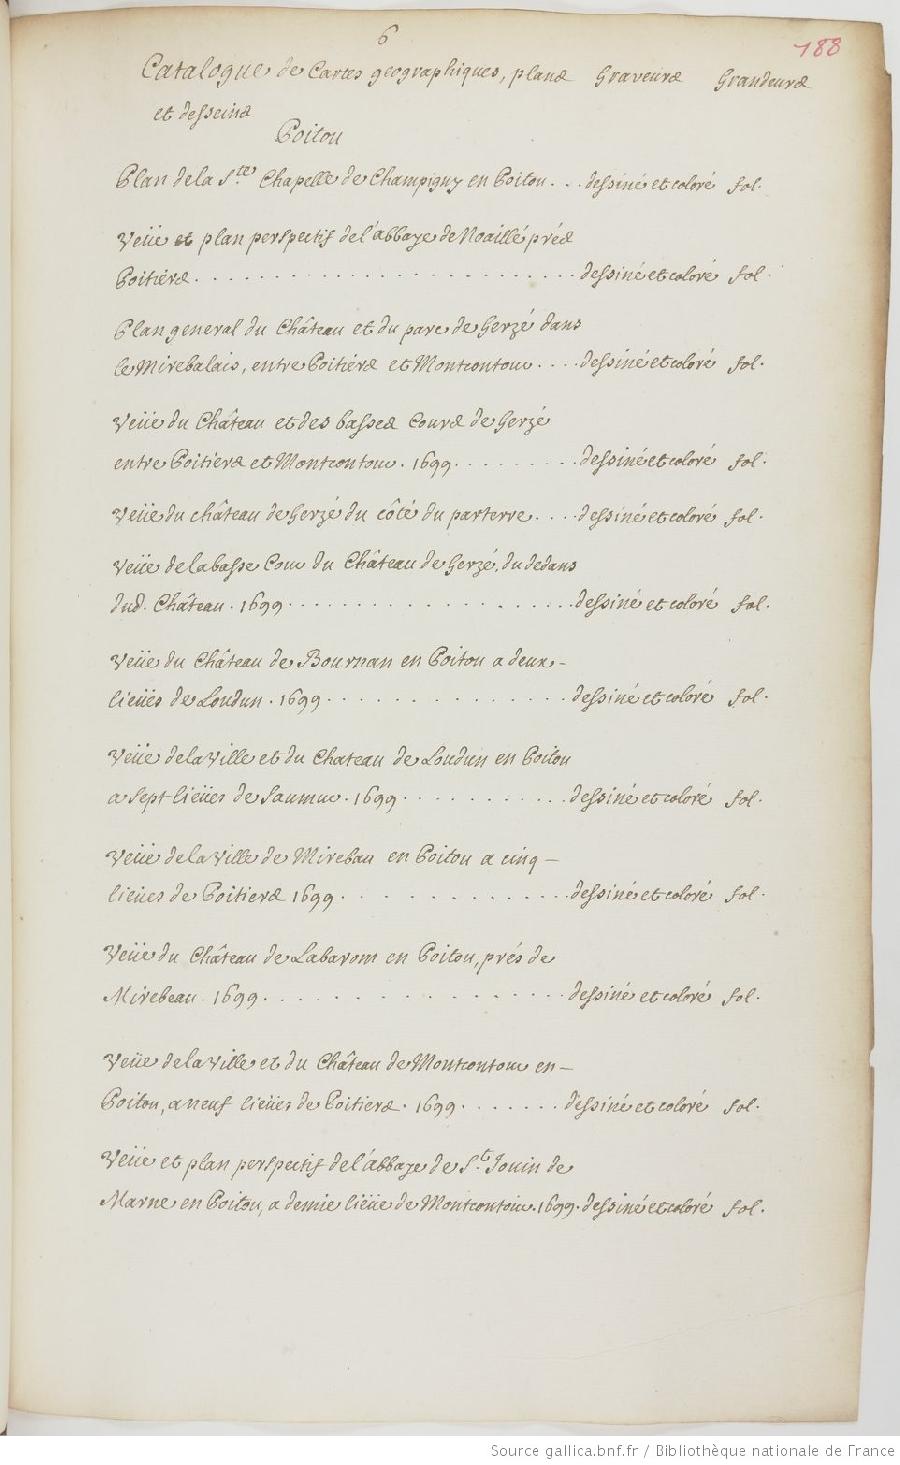 6
188
Catalogue de Cartes geographiques, plans Graveurs Grandeurs
et desseins
Poitou
Plan de la Ste. Chapelle de Champigny en Poitou . . . dessiné et coloré fol.
Veüe et plan perspectif de l'abbaye de Noaillé prés
Poitiers . . . . . . . . . . . . . . . . . . . . . . . . dessiné et coloré fol.
Plan general du Château et du parc de Gerzé dans
le Mirebalais, entre Poitiers et Montcontour . . . . dessiné et coloré fol.
Veüe du Château et des basses Cours de Gerzé
entre Poitiers et Montcontour . 1699 . . . . . . . . . dessiné et coloré fol.
Veüe du château de Gerzé du côté du parterre . . . . dessiné et coloré fol.
Veüe de la basse Cour du Château de Gerzé, du dedans
dud. Château . 1699 . . . . . . . . . . . . . . . . . . dessiné et coloré fol.
Veüe du Château de Bournan en Poitou a deux-
lieües de Loudun . 1699 . . . . . . . . . . . . . . . dessiné et coloré fol.
Veüe de la Ville et du Chateau de Loudun en Poitou
a sept lieües de Saumur . 1699 . . . . . . . . . . . dessiné et coloré fol.
Veüe de la Ville de Mirebau en Poitou a cinq-
lieues de Poitiers 1699 . . . . . . . . . . . . . dessiné et coloré fol.
Veüe du Château de Labarom en Poitou, prés de
Mirebeau 1699 . . . . . . . . . . . . . . . . dessiné et coloré fol.
Veüe de la Ville et du Château de Montcontour en-
Poitou, a neuf lieües de Poitiers . 1699 . . . . . . . dessiné et coloré fol.
Veüe et plan perspectif de l'abbaye de St. Jouin de
Marne en Poitou, a demie lieüe de Montcontour. 1699. dessiné et coloré fol.
Source gallica.bnf.fr / Bibliothèque nationale de France